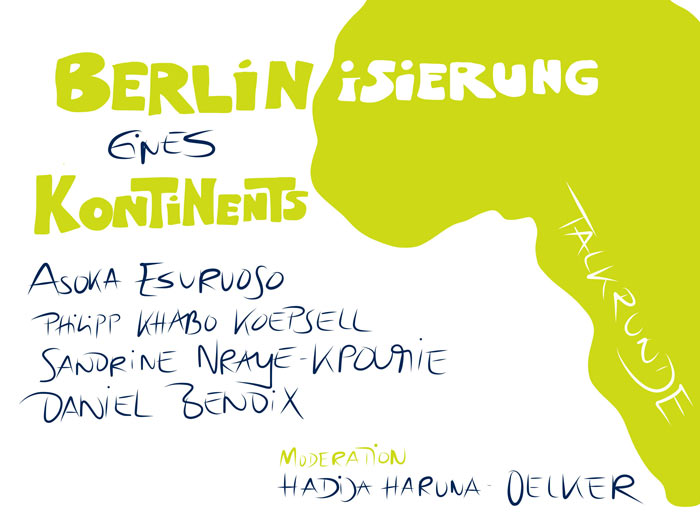 BERLINiSIERUNG
EiNES
KONTiNENTS
TALKRUNDE
ASOKA ESURUOSO
PHiLiPP KHABO KOEPSELL
SANDRINE NRAYE-KPOUMIE
DANIEL BENDiX
MODERATiON
HADiJA HARUNA-OELKER